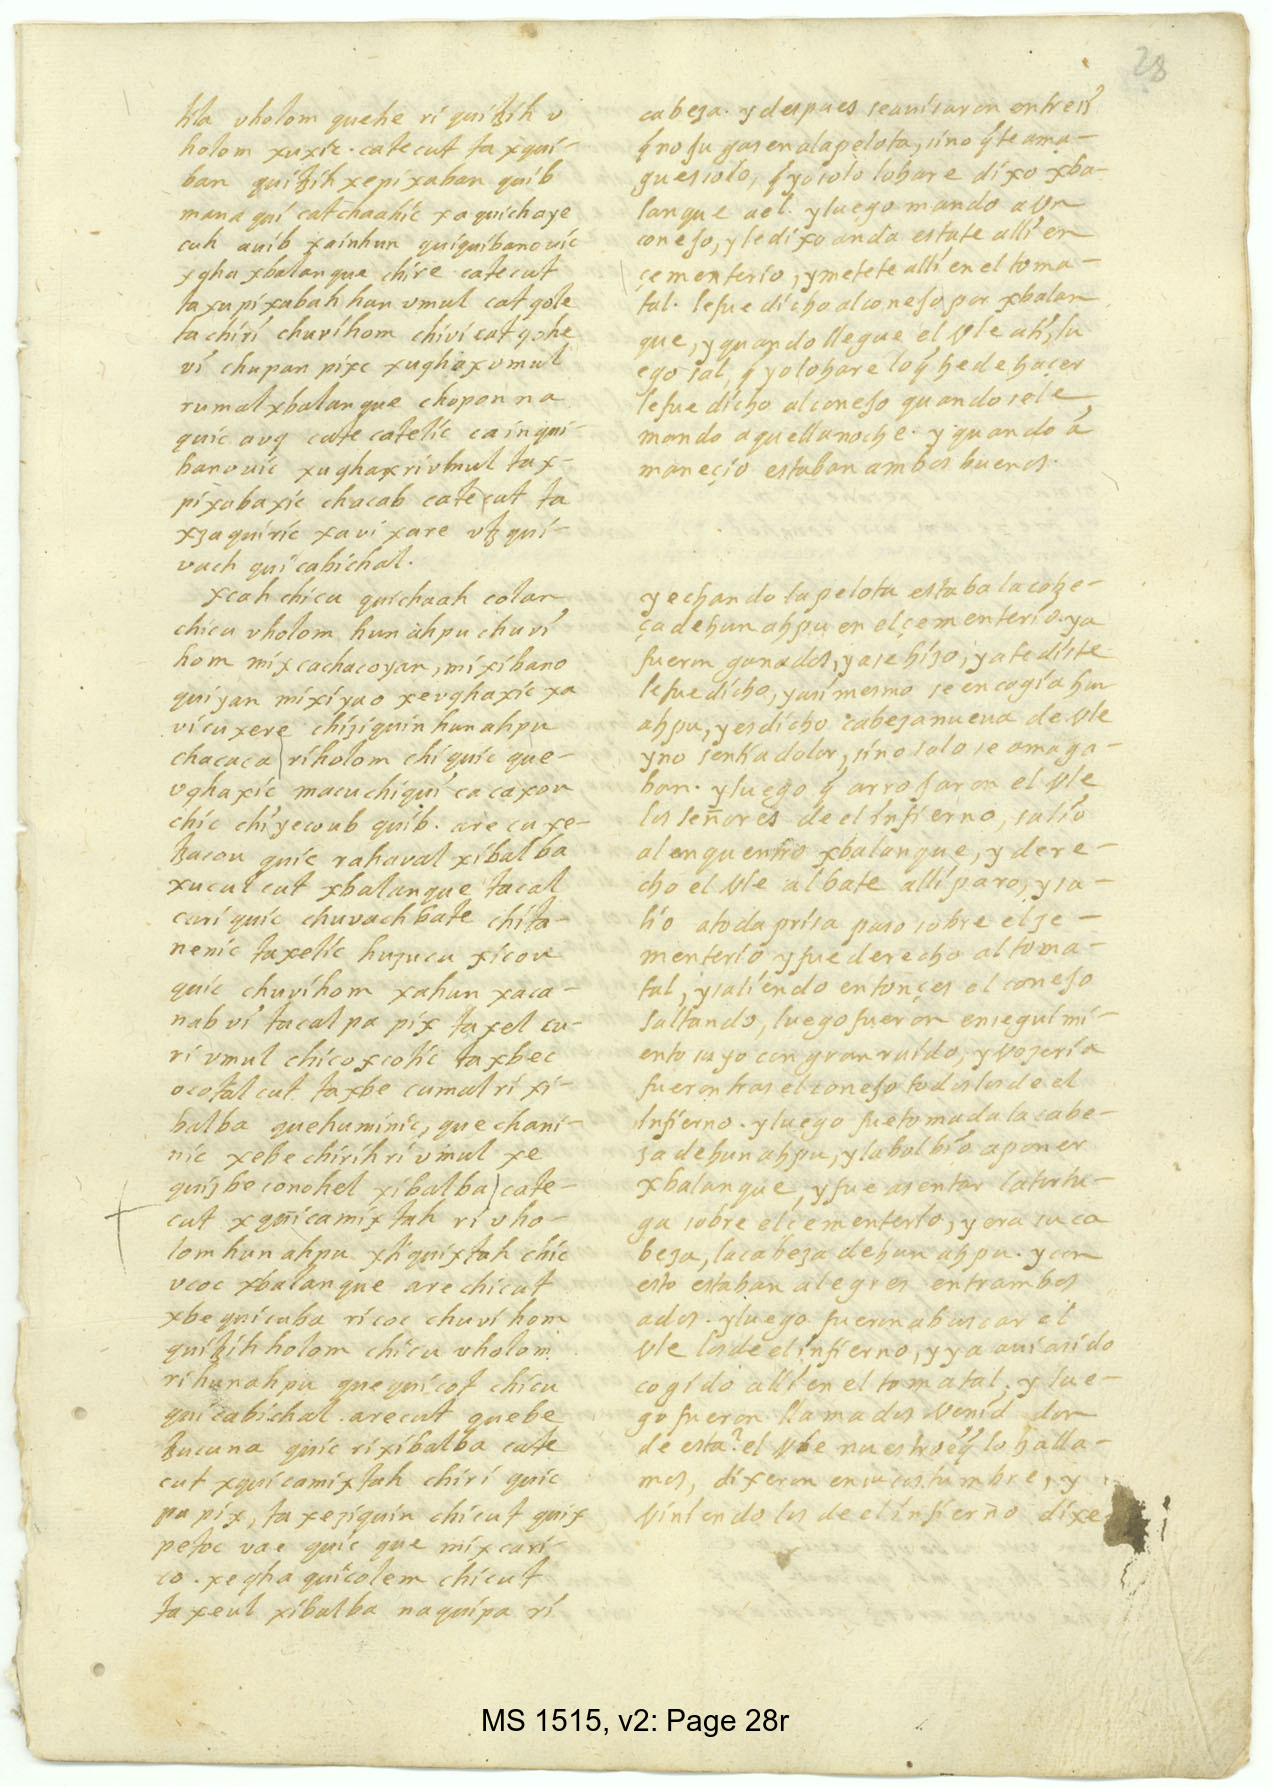 28
htla vholom quehe ri quitzih v
holom xuxic. catecut ta xqui-
ban quitzih xepixaban quib
mana qui catchaahic xa quichaye
cuh auib xainhun quiquibanouic
xgha xbalanque chire catecut
taxupixabah hun vmul cat gole
ta chiri chuvihom chivi cat gohe
vi chupan pixc xughax vmul
rumal xbalanque chopon na
quic avq cate catelic cainqui-
banouic xughax ri vmul tax-
pixabaxic chacab catecut ta
xzaquiric xavi xare vtz qui-
vach quicabichal.
xcah chicu quichaah colan
chicu vholom hunahpu chuvi
hom mixcachacoyan, mixibano
quiyan mixiyao xevghaxic xa
vicuxere chiziquin hunahpu
chacaca riholom chiquic que-
vghaxic macuchiqui ca caxon
chic chiyecoub quib. are cu xe-
tzacou quic rahaval xibalba
xucul cut xbalanque tacal
curi quic chuvach bate chita-
nenic taxelic huzucu xicou
quic chuvihom xahun xaca-
nab vi tacal pa pix taxel cu-
ri vmul chicoxcotic taxbec
ocotal cut taxbe cumal ri xi-
balba quehuminic, quechani-
nic xebe chirih ri vmul xe
quizbe conohel xibalba cate-
cut xquicamixtah ri vho-
lom hunahpu xtiquixtah chic
vcoc xbalanque are chicut
xbequicuba ricoc chuvi hom
quitzih holom chicu vholom
ri hunahpu quequicot chicu
quicabichal. arecut quebe
tzucuna quic ri xibalba cate
cut xquicamixtah chiri quic
pa pix, ta xeziquin chicut quix
petoc vae quic que mixcuri-
co. xegha quicolem chicut
ta xeul xibalba naquipa ri
cabeza. y despues seauisaron entresi
q̃ no jugas en la pelota, sino q̃ te ama-
gues solo, q̃ yo solo lo hare dixo xba-
lanque ael. y luego mando a vn
conejo, y le dixo anda estate alli en
çementerio, y metete alli en el toma-
tal. le fue dicho al conejo por xbalan
que, y quando llegue el Vle ahi, lu
ego sal, q̃ yo lo hare lo q̃ he de hacer
le fue dicho al conejo quando se le
mando aquella noche. y quando a
maneçio estaban ambos buenos.
y echando la pelota estaba la cobe-
ça de hun ahpu en el çementerio. ya
fueron ganados, ya se hizo, ya te diste
le fue dicho, y asi mesmo se encogia hun
ahpu, y es dicho cabeza nueua de Vle
y no sentia dolor, sino solo se amaga-
ban. y luego q̃ arrojaron el Vle
los señores de el infierno, salio
al enquentro xbalanque, y dere-
cho el Vle al bate alli paro, y sa-
lio a toda prisa paso sobre el ze-
menterio y fue derecho al toma-
tal, y saliendo entonçes el conejo
saltando, luego fueron en seguimi-
ento suyo con gran ruido, y Vozeria
fueron tras el conejo todos los de el
Infierno. y luego fue tomada la cabe-
za de hun ahpu, y la bolbio a poner
xbalanque, y fue a sentar la tortu-
ga sobre el çementerio, y era su ca
beza, la cabeza de hun ahpu. y con
esto estaban alegres entrambos
ados. y luego fueron a buscar el
Vle los de el infierno, y ya auia sido
cogido alli en el tomatal, y lue-
go fueron llamados Venid don
de esta? el Vle nuestro q̃ lo halla-
mos, dixeron en su costumbre, y
Viniendo los de el infierno dixe
MS 1515, v2: Page 28r